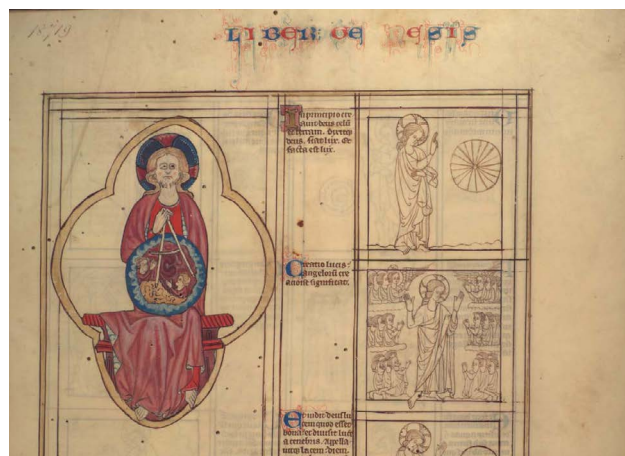 LIBER GENESIS
In principio cre
avit deus celū
et terram. dixitq;
deus. fiat lux. Et
facta est lux.
Creatio lucis
angelorū cre
ationē significat.
Et vidit deus lu
cem quod esset
bona et divisit lucē
a tenebris. Appella